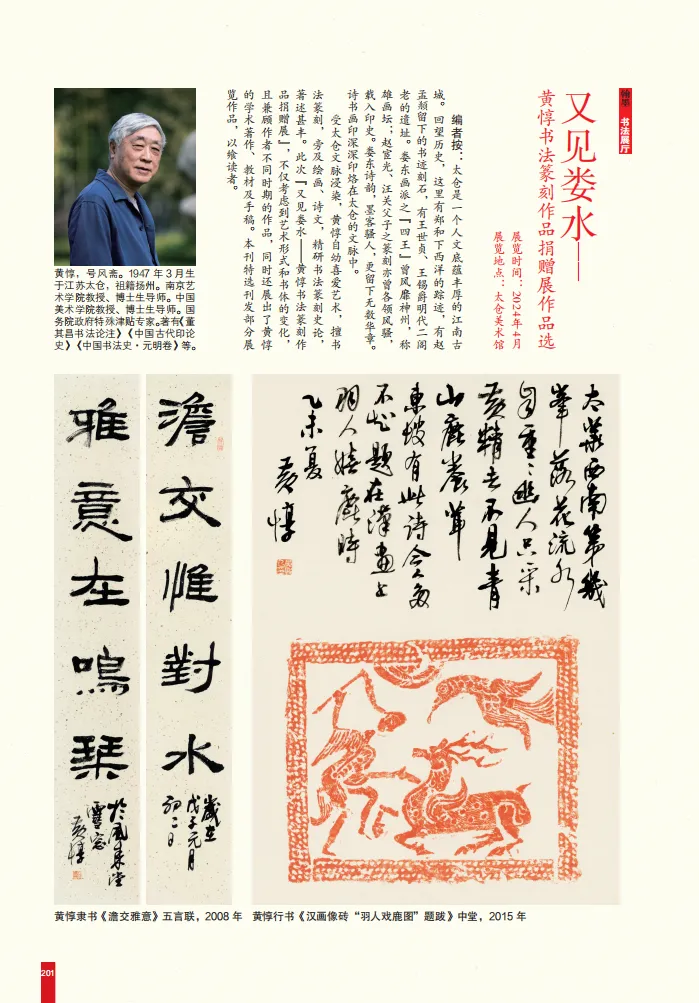 翰墨 书法展厅
又见娄水——
黄惇书法篆刻作品捐赠展作品选
展览时间：2024年4月
展览地点：太仓美术馆
编者按：太仓是一个人文底蕴丰厚的江南古
城。回望历史，这里有郑和下西洋的踪迹，有赵
孟頫留下的书迹刻石，有王世贞、王锡爵明代二阁
老的遗址。娄东画派之『四王』曾风靡神州，称
雄画坛；赵宧光、汪关父子之篆刻亦曾各领风骚，
载入印史。娄东诗韵，墨客骚人，更留下无数华章。
诗书画印深深印烙在太仓的文脉中。
受太仓文脉浸染，黄惇自幼喜爱艺术，擅书
法篆刻，旁及绘画、诗文，精研书法篆刻史论，
著述甚丰。此次『又见娄水——黄惇书法篆刻作
品捐赠展』，不仅考虑到艺术形式和书体的变化，
且兼顾作者不同时期的作品，同时还展出了黄惇
的学术著作、教材及手稿。本刊特选刊发部分展
览作品，以飨读者。
黄惇，号风斋。1947 年 3 月生
于江苏太仓，祖籍扬州。南京艺
术学院教授、博士生导师。中国
美术学院教授、博士生导师。国
务院政府特殊津贴专家。著有《董
其昌书法论注》《中国古代印论
史》《中国书法史·元明卷》等。
太華西南第幾
峯落花流水
自重重幽人只采
黄精去不見青
山鹿養茸
東坡有此詩今
不題在漢畫上
羽人嬉鹿時
乙未夏
黄惇
澹交惟對水
歲在
戊子元月
初二日
雅意在鳴琴
於風來堂
黄惇
黄惇隶书《澹交雅意》五言联，2008 年
黄惇行书《汉画像砖“羽人戏鹿图”题跋》中堂，2015 年
201